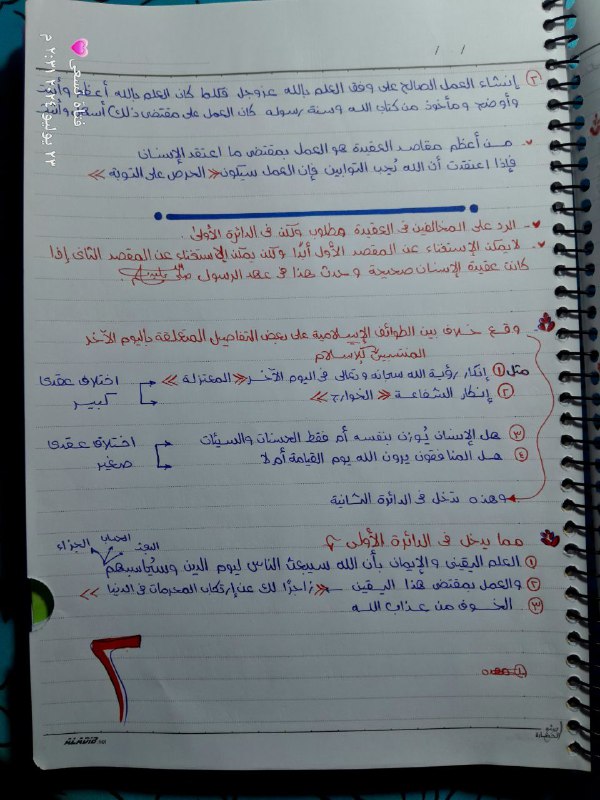 / /
② إنشاء العمل الصالح على وفق العلم بالله عزوجل فكلما كان العلم بالله أعظم وأثبت
وأوضح ومأخوذ من كتاب الله وسنة رسوله كان العمل على مقتضى ذلك أسهل وأثبت
من أعظم مقاصد العقيدة هو العمل بمقتضى ما اعتقد الإنسان
فإذا اعتقدت أن الله يُحب التوابين فإن العمل سيكون «الحرص على التوبة»
الرد على المخالفين في العقيدة مطلوب ولكن في الدائرة الأولى.
لا يمكن الإستغناء عن المقصد الأول أبدًا ولكن يمكن الإستغناء عن المقصد الثاني إذا
كانت عقيدة الإنسان صحيحة وحدث هذا في عهد الرسول ﷺ.
وقع خلاف بين الطوائف الإسلامية على بعض التفاصيل المتعلقة باليوم الآخر
المنتسبين للإسلام
مثل ① إنكار رؤية الله سبحانه وتعالى في اليوم الآخر «المعتزلة»
② إنكار الشفاعة «الخوارج»
اختلاف عقدى
كبير
③ هل الإنسان يُوزن بنفسه أم فقط الحسنات والسيئات
④ هل المنافقون يرون الله يوم القيامة أم لا
اختلاف عقدى
صغير
وهذه تدخل في الدائرة الثانية
مما يدخل في الدائرة الأولى؟
البعث الحساب الجزاء
① العلم اليقيني والإيمان بأن الله سيبعث الناس ليوم الدين وسيُحاسبهم
② والعمل بمقتضى هذا اليقين «زاجرًا لك عن إرتكاب المحرمات في الدنيا»
③ الخوف من عذاب الله
٢
ALADIB
٢٢ يوليو ٢٠٢٤ ٢:٣١ م